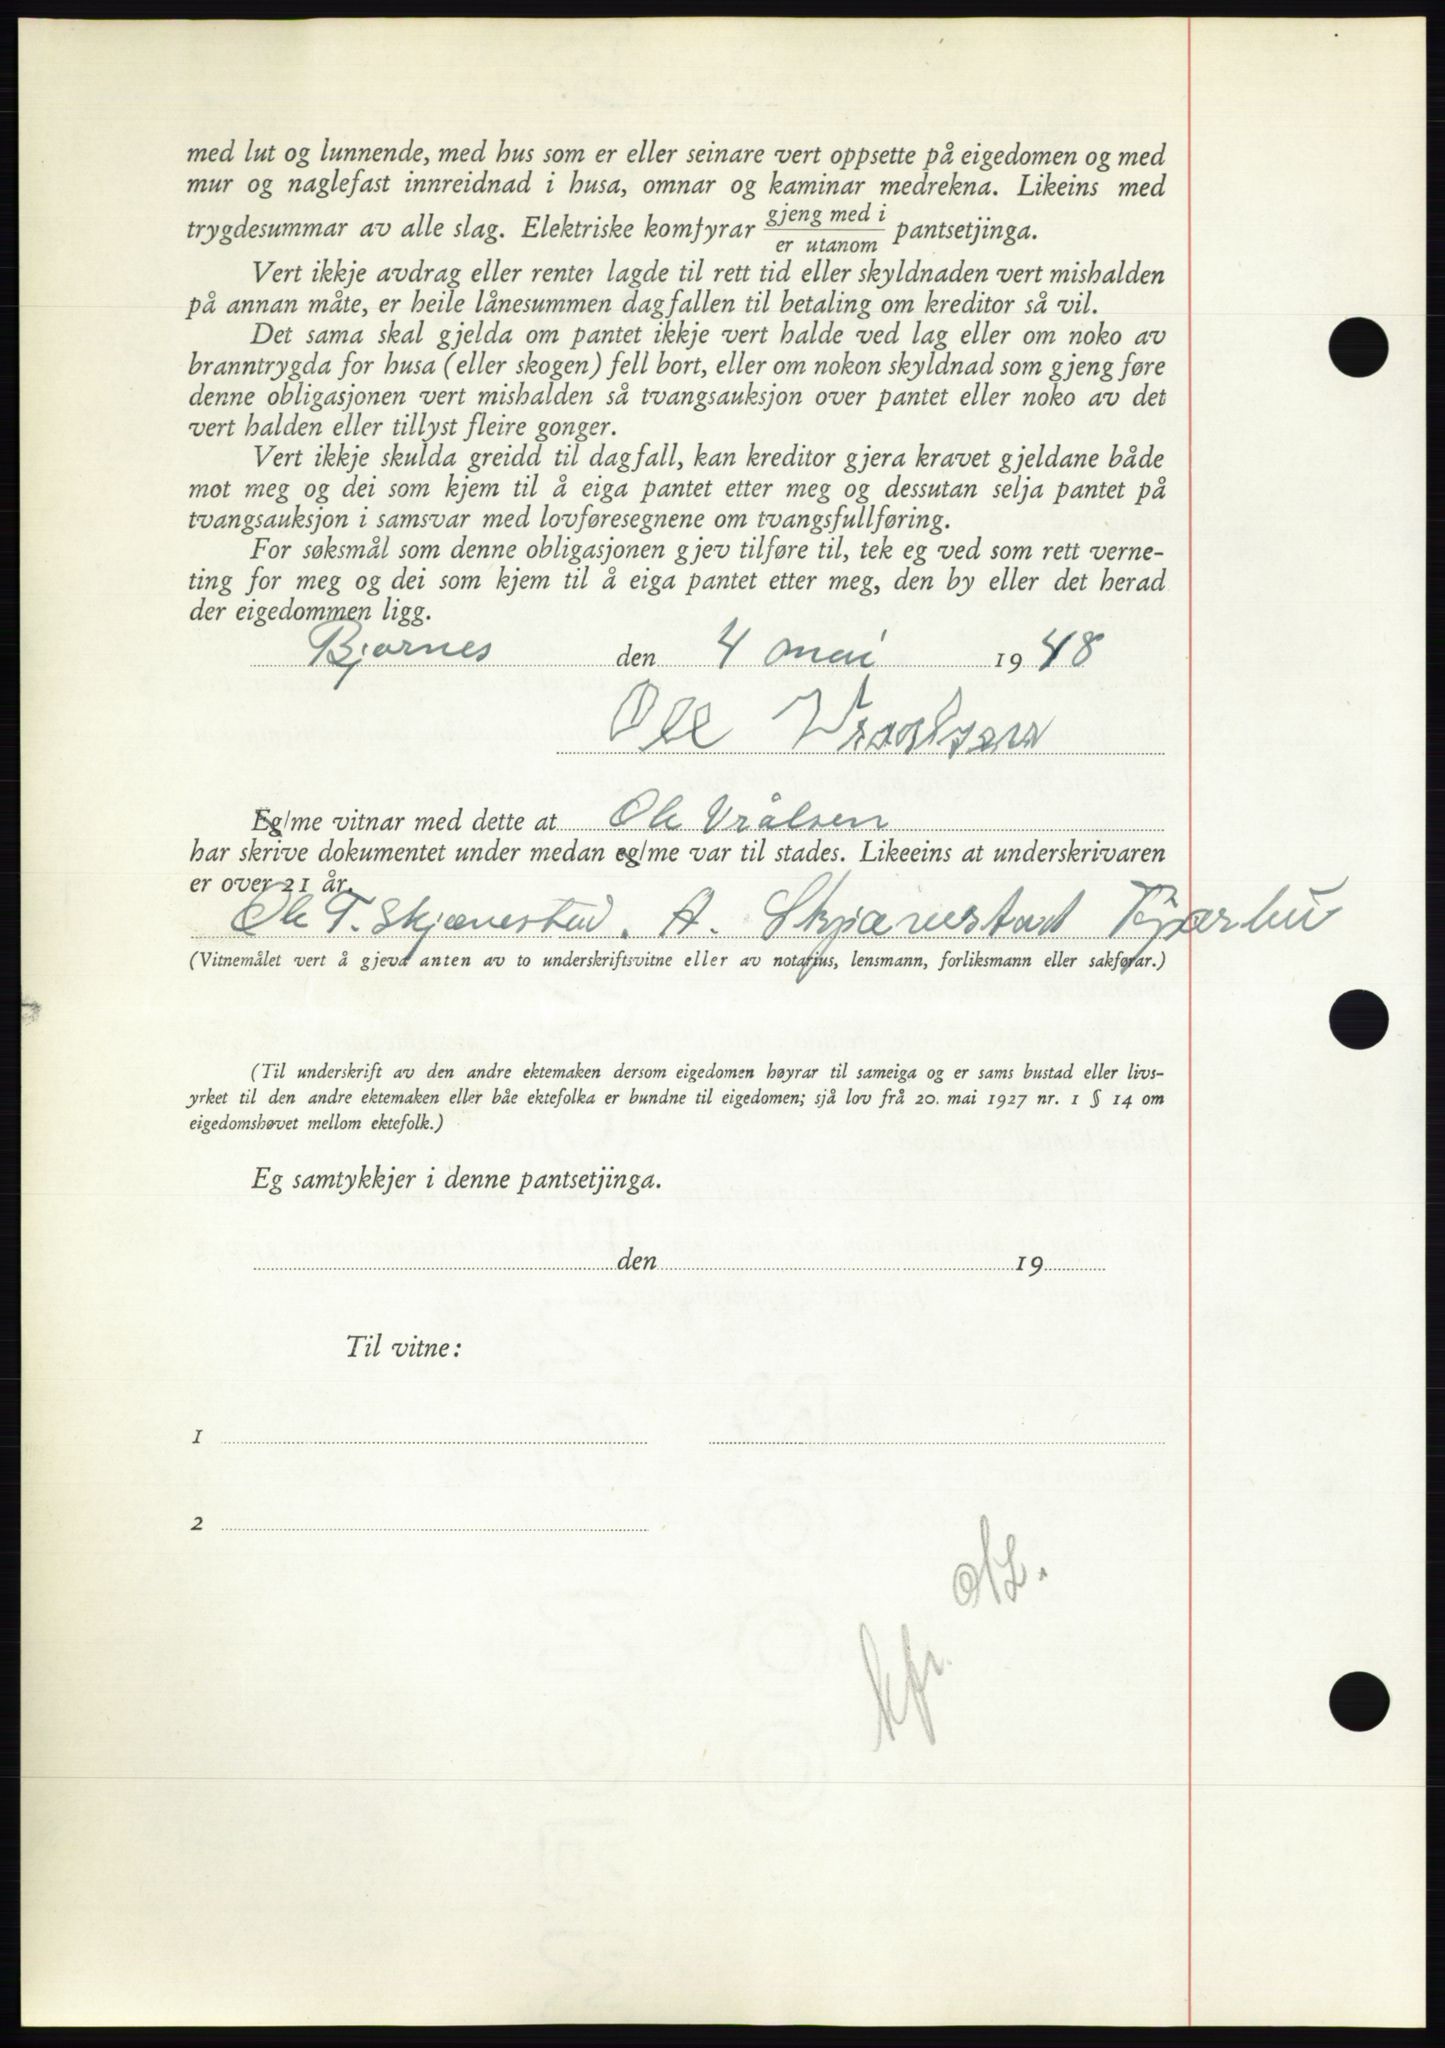 med lut og lunnende, med hus som er eller seinare vert oppsette på eigedomen og med
mur og naglefast innreidnad i husa, omnar og kaminar medrekna. Likeins med
trygdesummar av alle slag. Elektriske komfyrar gjeng med i / er utanom pantsetjinga.
Vert ikkje avdrag eller renter lagde til rett tid eller skyldnaden vert mishalden
på annan måte, er heile lånesummen dagfallen til betaling om kreditor så vil.
Det sama skal gjelda om pantet ikkje vert halde ved lag eller om noko av
branntrygda for husa (eller skogen) fell bort, eller om nokon skyldnad som gjeng føre
denne obligasjonen vert mishalden så tvangsauksjon over pantet eller noko av det
vert halden eller tillyst fleire gonger.
Vert ikkje skulda greidd til dagfall, kan kreditor gjera kravet gjeldane både
mot meg og dei som kjem til å eiga pantet etter meg og dessutan selja pantet på
tvangsauksjon i samsvar med lovføresegnene om tvangsfullføring.
For søksmål som denne obligasjonen gjev tilføre til, tek eg ved som rett verne-
ting for meg og dei som kjem til å eiga pantet etter meg, den by eller det herad
der eigedommen ligg.
Bjornes den 4 mai 1948
Ole
Eg/me vitnar med dette at Ole Vrålsen
har skrive dokumentet under medan eg/me var til stades. Likeeins at underskrivaren
er over 21 år.
Ole T. Skjævestad. A. Skjævestad
(Vitnemålet vert å gjeva anten av to underskriftsvitne eller av notarius, lensmann, forliksmann eller sakførar.)
(Til underskrift av den andre ektemaken dersom eigedomen høyrar til sameiga og er sams bustad eller livs-
yrket til den andre ektemaken eller båe ektefolka er bundne til eigedomen; sjå lov frå 20. mai 1927 nr. 1 § 14 om
eigedomshøvet mellom ektefolk.)
Eg samtykkjer i denne pantsetjinga.
den 19
Til vitne:
1
2
kfr.